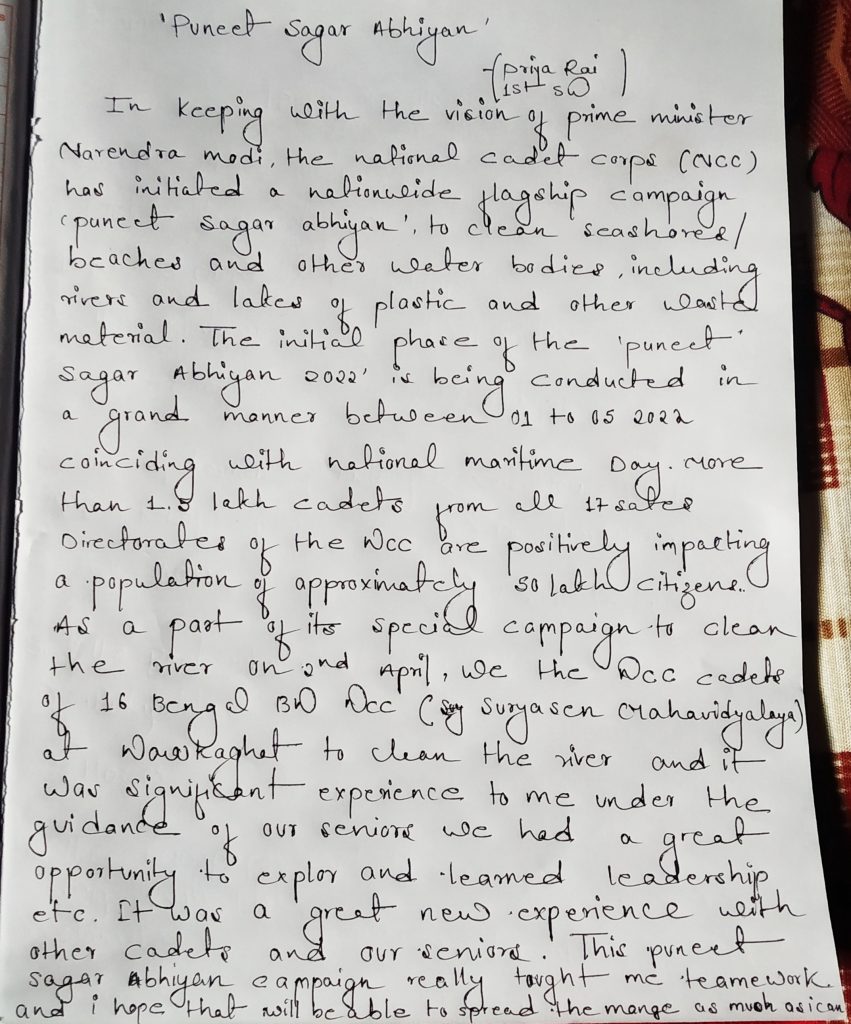 'Puneet Sagar Abhiyan'
-(priya Rai)
1st SW
In keeping with the vision of prime minister
Narendra modi, the national cadet corps (NCC)
has initiated a nationwide flagship campaign
'puneet sagar abhiyan', to clean seashores/
beaches and other water bodies, including
rivers and lakes of plastic and other waste
material. The initial phase of the 'puneet
Sagar Abhiyan 2022' is being conducted in
a grand manner between 01 to 05 2022
coinciding with national maritime Day. More
than 1.5 lakh cadets from all 17 sates
Directorates of the Ncc are positively impacting
a population of approximately 50 lakh citizens..
As a part of its special campaign to clean
the river on 2nd April, we the Ncc cadets
of 16 Bengal BN Ncc (Suryasen Mahavidyalaya)
at Nawkaghat to clean the river and it
was significant experience to me under the
guidance of our seniors we had a great
opportunity to explor and learned leadership
etc. It was a great new experience with
other cadets and our seniors. This puneet
sagar Abhiyan campaign really taught me teamework
and i hope that will be able to spread the mange as much as i can